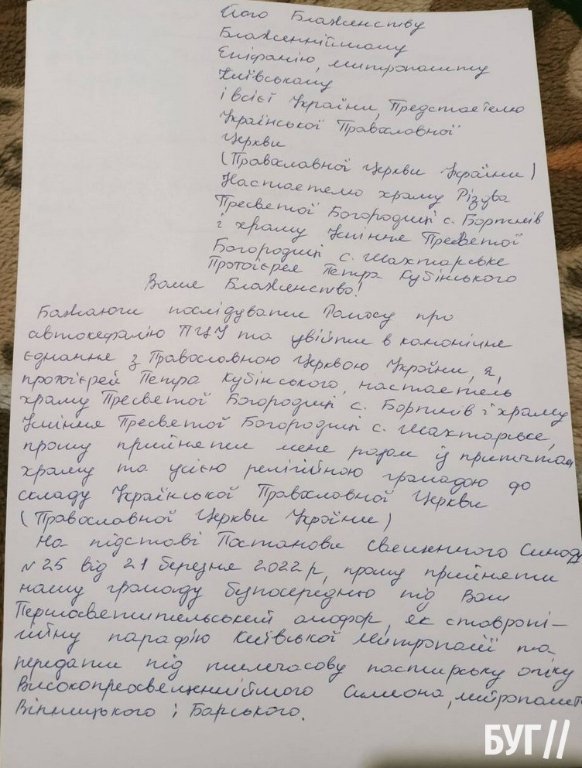 Його Блаженству
Блаженнійшому
Епіфанію, митрополиту
Київському
і всієї України, Предстоятелю
Української Православної
Церкви
(Православної Церкви України)
Настоятелю храму Різува
Пресветої Богородиці с. Бортків
і храму Успіння Пресветої
Богородиці с. Шахтарське
Протоієрея Петра Кубінського
Ваше Блаженство!
Бажаючи послідувати Томосу про
автокефалію ПЦУ та увійти в канонічне
єднання з Православною Церквою України, я,
протоієрей Петра Кубінського, настоятель
храму Пресветої Богородиці с. Бортків і храму
Успіння Пресветої Богородиці с. Шахтарське,
прошу прийняти мене разом із притчтом
храму та усією релігійною громадою до
складу Української Православної Церкви
(Православної Церкви України)
На підстові Постанови Свещеного Синоду
№25 від 21 березня 2022 р, прошу прийняти
нашу громаду безпосередньо під Ваш
Першосветительський омофор, як ставропі-
гійну парафію Київської Митрополії та
передати під тимчасову пастирську опіку
Високопреосвещеннійшого Симеона, митрополит
Вінницького і Барського.
БУГ//